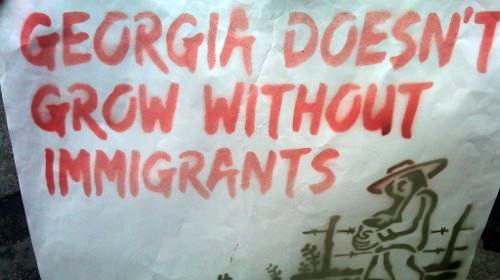 GEORGIA DOESN'T
GROW WITHOUT
IMMIGRANTS